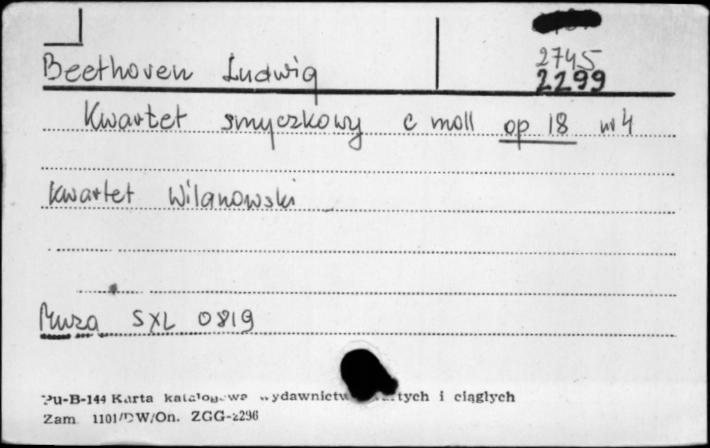 2745
Beethoven Ludwig 2299
Kwartet smyczkowy c moll op 18 nr 4
Kwartet Wilanowski
Muza SXL 0819
Pu-B-144 Karta katalogowa wydawnictw zwartych i ciągłych
Zam. 1101/DW/On. ZGG-2296